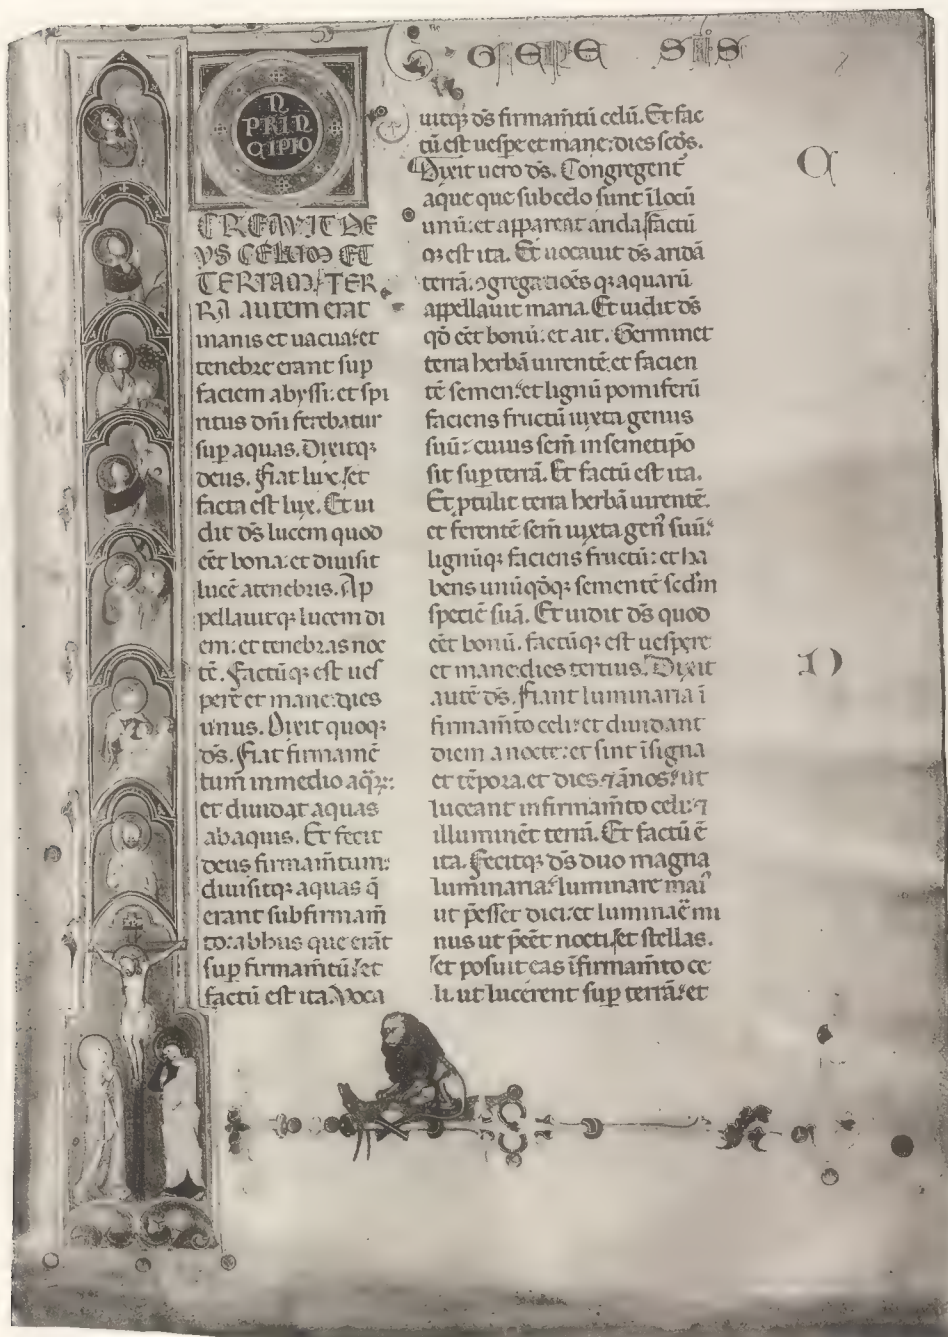 GENE SIS
N
PRIN
CIPIO
CREAVIT DE
VS CELUM ET
TERRAM/TER
RA autem erat
inanis et uacua:et
tenebre erant sup
faciem abyssi:et spi
ritus dñi ferebatur
sup aquas. Dixitq;
deus. Fiat lux. et
facta est lux. Et ui
dit ds̄ lucem quod
eēt bona:et diuisit
lucē atenebris. Ap
pellauitq; lucem di
em:et tenebras noc
tē. Factūq; est ues
pere et mane:dies
unus. Dixit quoq;
ds̄. Fiat firmamē
tum in medio aq̄ꝝ:
et diuidat aquas
ab aquis. Et fecit
deus firmam̄tum:
diuisitq; aquas q̄
erant sub firmam̄
to:ab hiis que erāt
sup firmam̄tū:et
factū est ita. Voca
uitq; ds̄ firmam̄tū celū. Et fac
tū est uespe et mane:dies scd̄s.
Dixit uero ds̄. Congregent᷑
aque que sub celo sunt ī locū
unū:et appareat arida/factū
q; est ita. Et uocauit ds̄ aridā
terrā. ꝯgregacioēs q; aquarū
appellauit maria. Et uidit ds̄
qd̄ eēt bonū:et ait. Germinet
terra herbā uirentē:et facien
tē semen:et lignū pomiferū
faciens fructū iuxta genus
suū:cuius sem̄ in semetip̄o
sit sup terrā. Et factū est ita.
Et ꝓtulit terra herbā uirentē.
et ferentē sem̄ iuxta gen᷒ suū:
lignūq; faciens fructū:et ha
bens unūqd̄q; sementē sed̄m
speciē suā. Et uidit ds̄ quod
eēt bonū. factūq; est uespere
et mane:dies tertius. Dixit
autē ds̄. Fiant luminaria ī
firmam̄to celi:et diuidant
diem a nocte:et sint ī signa
et tēpora. et dies. ⁊ ānos:ut
luceant in firmam̄to celi:⁊
illuminēt terrā. Et factū ē
ita. Fecitq; ds̄ duo magna
luminaria:luminare mai᷒
ut p̄esset diei:et luminaē mi
nus ut p̄eēt nocti/et stellas.
et posuit eas ī firmam̄to ce
li. ut lucerent sup terrā:et